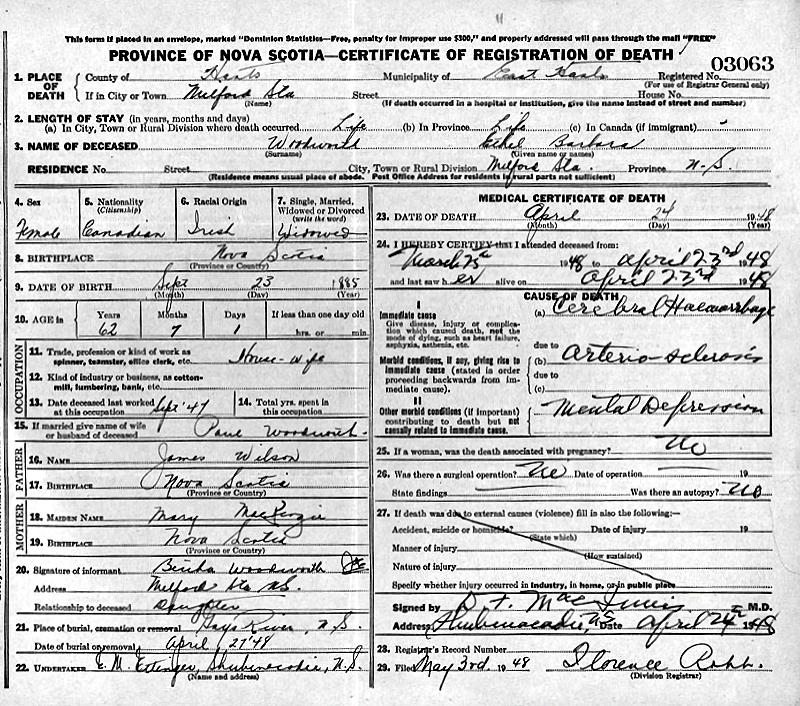 This form if placed in an envelope, marked "Dominion Statistics—Free, penalty for improper use $300," and properly addressed will pass through the mail "FREE"
PROVINCE OF NOVA SCOTIA—CERTIFICATE OF REGISTRATION OF DEATH
03063
1. PLACE OF DEATH County of Hants Municipality of East Hants Registered No.
(For use of Registrar General only)
If in City or Town Milford Sta Street House No.
(Name) (If death occurred in a hospital or institution, give the name instead of street and number)
2. LENGTH OF STAY (in years, months and days)
(a) In City, Town or Rural Division where death occurred Life (b) In Province Life (c) In Canada (if immigrant) -
3. NAME OF DECEASED Woodworth Ethel Barbara
(Surname) (Given name or names)
RESIDENCE No Street City, Town or Rural Division Milford Sta. Province N.S.
(Residence means usual place of abode. Post Office Address for residents in rural parts not sufficient)
4. Sex Female
5. Nationality (Citizenship) Canadian
6. Racial Origin Irish
7. Single, Married, Widowed or Divorced (write the word) Widowed
8. BIRTHPLACE Nova Scotia
(Province or Country)
9. DATE OF BIRTH Sept 23 1885
(Month) (Day) (Year)
10. AGE in Years Months Days If less than one day old
62 7 1 hrs. or min.
OCCUPATION
11. Trade, profession or kind of work as spinner, teamster, office clerk, etc. House-wife
12. Kind of industry or business, as cotton-mill, lumbering, bank, etc.
13. Date deceased last worked at this occupation Sept '47
14. Total yrs. spent in this occupation
15. If married give name of wife or husband of deceased Paul Woodworth
FATHER
16. NAME James Wilson
17. BIRTHPLACE Nova Scotia
(Province or Country)
MOTHER
18. MAIDEN NAME Mary MacKenzie
19. BIRTHPLACE Nova Scotia
(Province or Country)
20. Signature of informant Woodworth
Address Milford Sta N.S.
Relationship to deceased Daughter
21. Place of burial, cremation or removal Gays River, N.S.
Date of burial or removal April 27 '48
22. UNDERTAKER E. M. Ettinger, Shubenacadie, N.S.
(Name and address)
MEDICAL CERTIFICATE OF DEATH
23. DATE OF DEATH April 24 1948
(Month) (Day) (Year)
24. I HEREBY CERTIFY that I attended deceased from:
March 25th 1948 to April 23rd 1948
and last saw her alive on April 23rd 1948
CAUSE OF DEATH
I
Immediate cause (a) Cerebral Haemorrhage
Give disease, injury or complication which caused death, not the mode of dying, such as heart failure, asphyxia, asthenia, etc.
due to
Morbid conditions, if any, giving rise to immediate cause (stated in order proceeding backwards from immediate cause). (b) Arterio-sclerosis
due to
(c)
II
Other morbid conditions (if important) contributing to death but not causally related to immediate cause. Mental Depression
25. If a woman, was the death associated with pregnancy? No
26. Was there a surgical operation? No Date of operation 19
State findings Was there an autopsy? No
27. If death was due to external causes (violence) fill in also the following:—
Accident, suicide or homicide? Date of injury 19
(State which)
Manner of injury
(How sustained)
Nature of injury
Specify whether injury occurred in industry, in home, or in public place
Signed by D. F. MacInnis M.D.
Address Shubenacadie, N.S. Date April 24th 1948
28. Registrar's Record Number
29. Filed May 3rd. 1948 Florence Robb.
(Division Registrar)